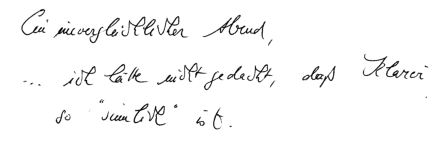 Ein unvergleichlicher Abend,
... ich hätte nicht gedacht, daß Klavier
so "sinnlich" ist.